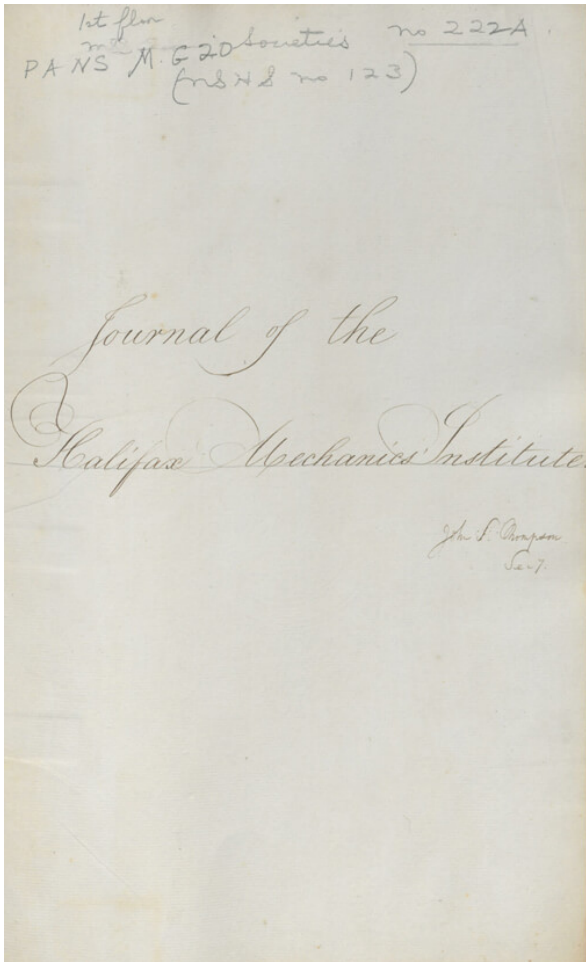 1st floor
PANS M.G 20 Societies no 222A.
(NSHS no 123)
Journal of the
Halifax Mechanics' Institute.
John S. Thompson
Sec'y.